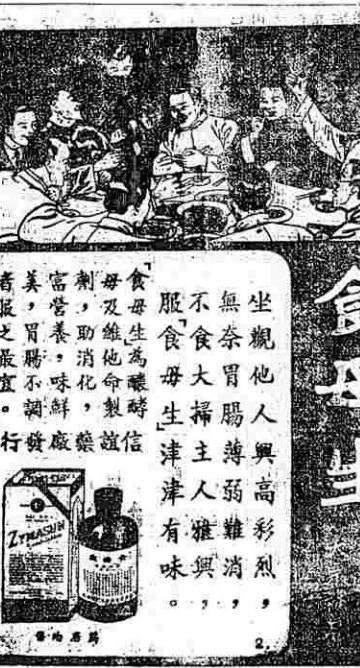 食母生
坐觀他人興高彩烈，
無奈胃腸薄弱難消，
不食大掃主人雅興，
服「食母生」津津有味。
「食母生為釀酵
母及維他命製
劑，助消化，
富營養，味鮮
美，胃腸不調
者服之最宜。
信誼藥廠發行
ZYMASUN
藥房均售
2.